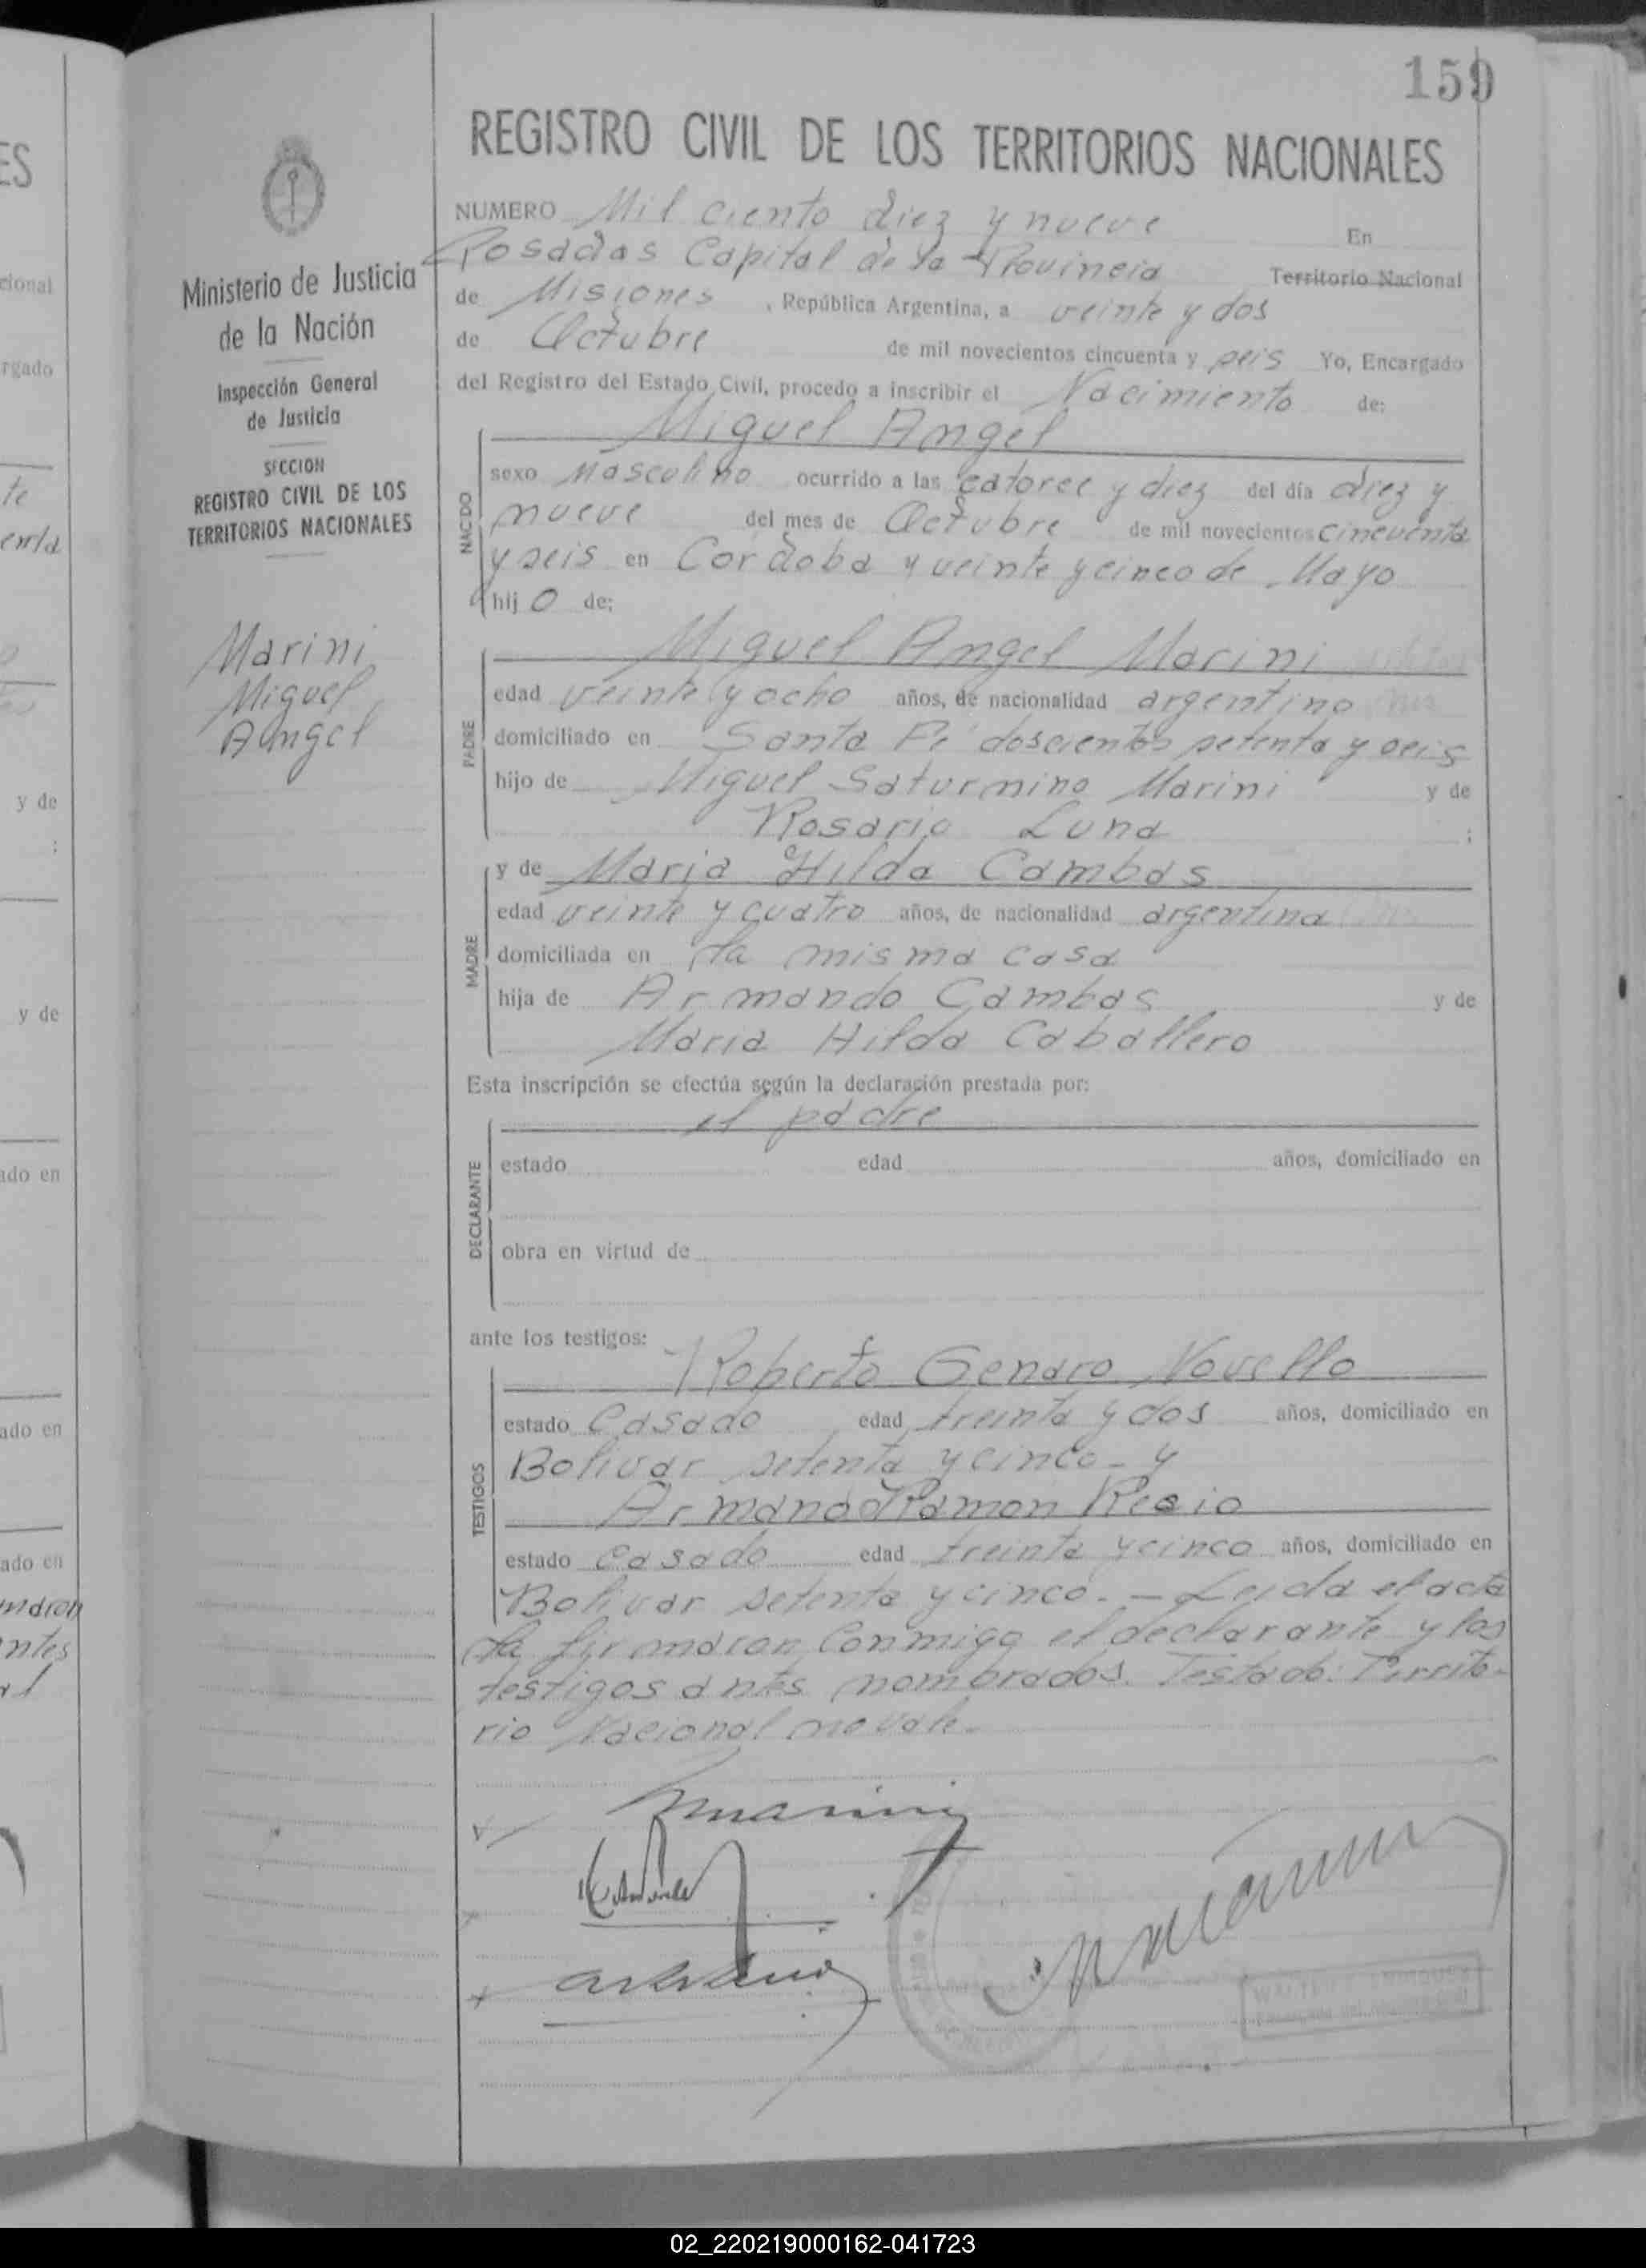 159
REGISTRO CIVIL DE LOS TERRITORIOS NACIONALES
NUMERO Mil ciento diez y nueve En
Posadas Capital de la Provincia Territorio Nacional
de Misiones, República Argentina, a veinte y dos
de Octubre de mil novecientos cincuenta y seis Yo, Encargado
del Registro del Estado Civil, procedo a inscribir el Nacimiento de:
Ministerio de Justicia
de la Nación
Inspección General
de Justicia
SECCION
REGISTRO CIVIL DE LOS
TERRITORIOS NACIONALES
Marini
Miguel
Angel
NACIDO
Miguel Angel
sexo Masculino ocurrido a las catorce y diez del día diez y
nueve del mes de Octubre de mil novecientos cincuenta
y seis en Cordoba y veinte y cinco de Mayo
hijo de:
PADRE
Miguel Angel Marini
edad veinte y ocho años, de nacionalidad argentino
domiciliado en Santa Fé doscientos setenta y seis
hijo de Miguel Saturnino Marini y de
Rosario Luna ;
MADRE
y de Maria Hilda Cambas
edad veinte y cuatro años, de nacionalidad argentina
domiciliada en la misma casa
hija de Armando Cambas y de
Maria Hilda Caballero
Esta inscripción se efectúa según la declaración prestada por:
DECLARANTE
el padre
estado edad años, domiciliado en
obra en virtud de
ante los testigos:
TESTIGOS
Roberto Genaro Novello
estado Casado edad treinta y dos años, domiciliado en
Bolivar setenta y cinco - y
Armando Ramon Recio
estado casado edad treinta y cinco años, domiciliado en
Bolivar setenta y cinco. — Leida el acta
la firmaron conmigo el declarante y los
testigos antes nombrados. Testado: Territo-
rio Nacional no vale.
Marini
02_220219000162-041723